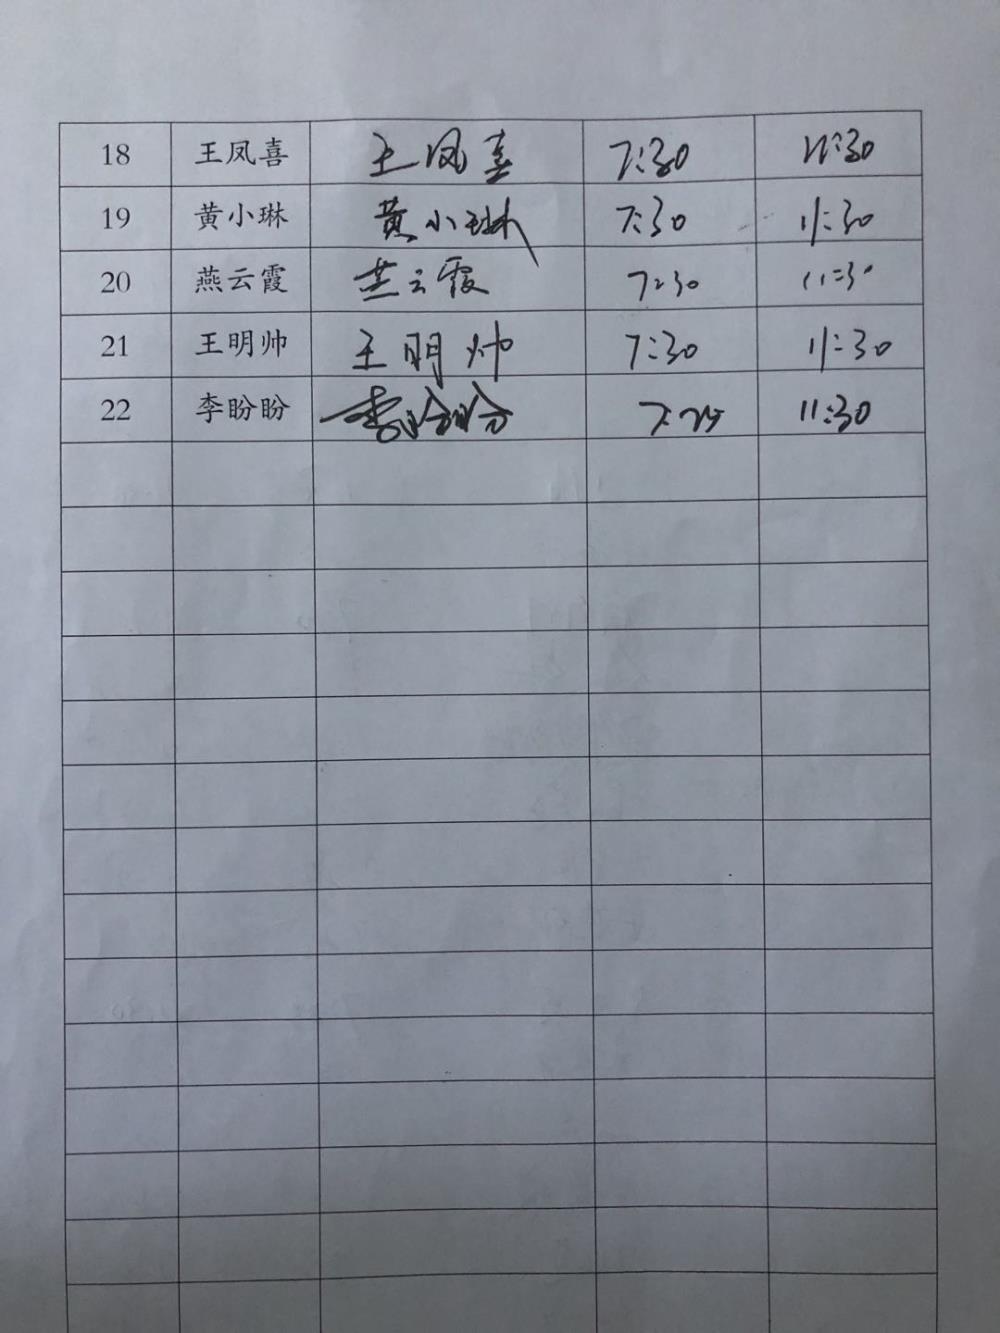 18 王凤喜 王凤喜 7:30 11:30
19 黄小琳 黄小琳 7:30 11:30
20 燕云霞 燕云霞 7:30 11:30
21 王明帅 王明帅 7:30 11:30
22 李盼盼 李盼盼 7:25 11:30